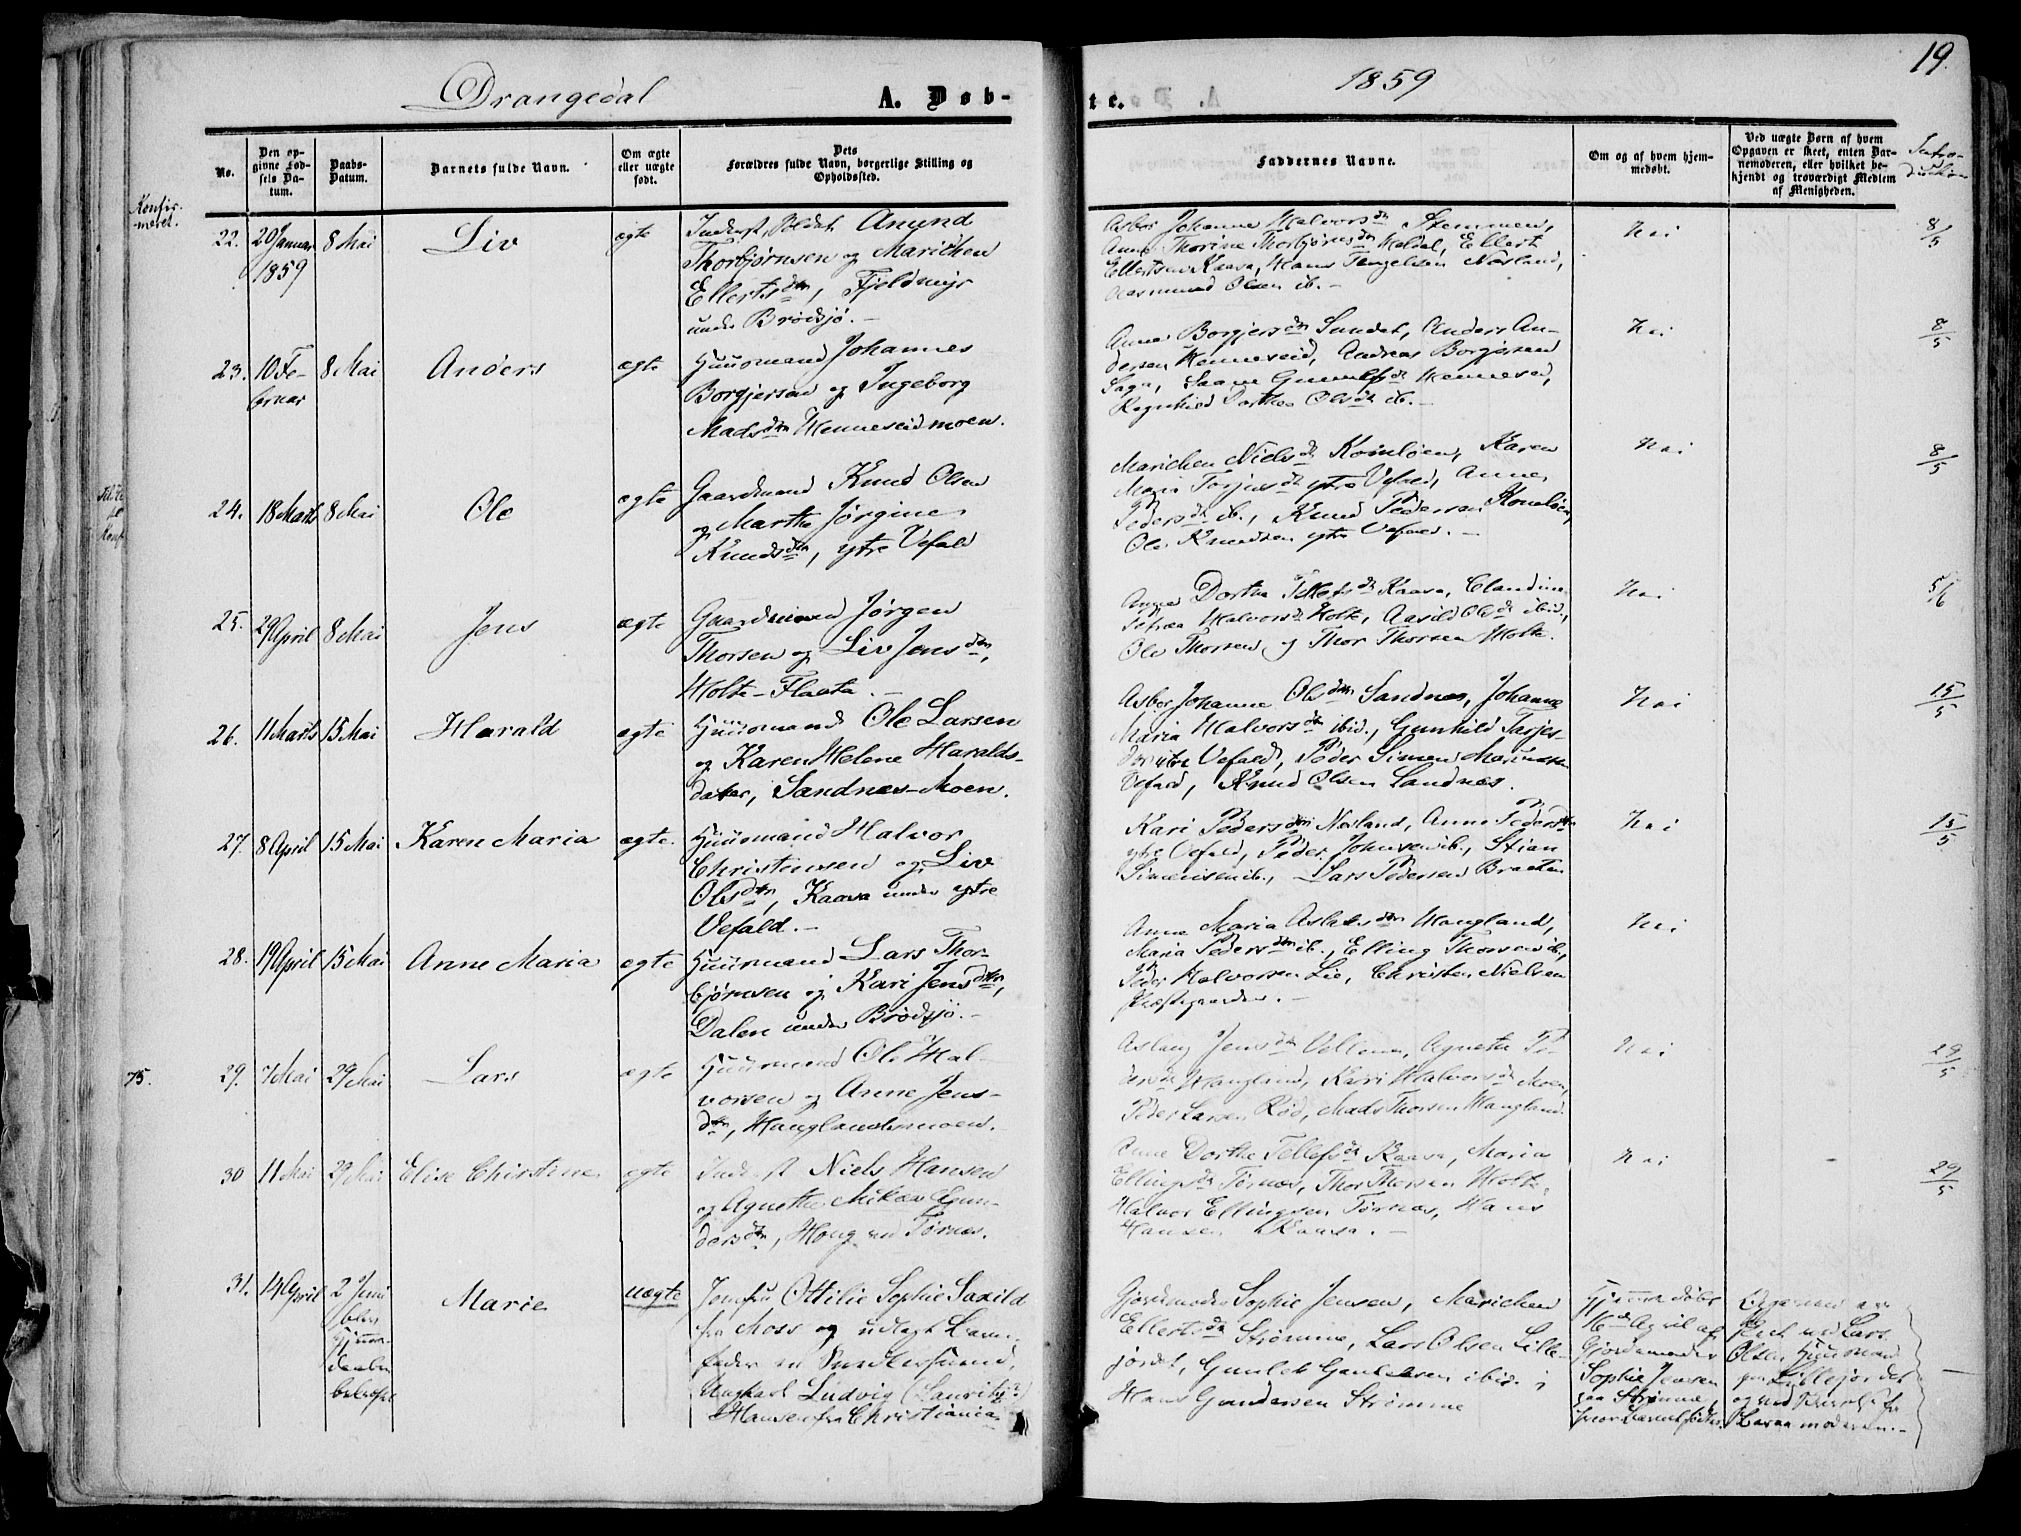 Drangedal
A. Døb-
te.
1859
19.
No.
Den op-
givne Fød-
sels Da-
tum.
Daabs-
Datum.
Barnets fulde Navn.
Om ægte
eller uægte
født.
Dets
Forældres fulde Navn, borgerlige Stilling og
Opholdssted.
Faddernes Navne.
Om og af hvem hjem-
medøbt.
Ved uægte Børn af hvem
Opgaven er skeet, enten Bar-
nemoderen, eller hvilket be-
kjendt og troværdigt Medlem
af Menigheden.
Intro-
duction
Konfir-
meret.
22. 29 Januar 8 Mai Liv ægte Inderst, Soldat Anund
1859 Thorbjørnsen og Marichen
Ellertsdtr, Fjeldmyr
under Brødsjø.-
Asbor Johanne Halvorsdtr Stemmen,
Anne Thorine Thorbjørnsdtr Heldal, Ellert
Ellertsen Kaasa, Hans Tengelsen Næsland,
Aasmund Olsen ib.-
Nei
8/5
23. 10 Fe- 8 Mai Anders ægte Huusmand Johannes
bruar Borgjersen og Ingeborg
Madsdtr Henneseidmoen.
Anne Borgjersdtr Sundet, Anders An-
dersen Henneseid, Andreas Borgersen
Saga, Gunulfsdtr Henneseid,
Ragnhild Dorthea Olsdtr ib.-
Nei
8/5
24. 18 Marts 8 Mai Ole ægte Gaardmand Knud Olsen
og Marthe Jørgine
Knudsdtr, ytre Vefald
Marichen Nielsdtr Komløen, Karen
Maria Torjusdtr ytre Vefald, Anne
Pedersdtr ib., Knud Pedersen Komløen,
Ole Knudsen ytre Vefald.-
Nei
8/5
25. 29 April 8 Mai Jens ægte Gaardmand Jørgen
Thorsen og Liv Jensdtr,
Holte-Flaata.-
Anne Dorthe Kaasa, Claudine
Petræa Halvorsdtr Holte, Aasild Olsdtr ibid.,
Ole Thorsen og Thor Thorsen Holte.
Nei
5/6
26. 11 Marts 15 Mai Harald ægte Huusmand Ole Larsen
og Karen Helene Haralds-
datter, Sandnæs-Moen.
Asbor Johanne Olsdtr Sandnæs, Johanne
Maria Halvorsdtr ibid., Gunhild Tarjes-
dtr ytre Vefald, Peder Simon
Vefald, Knud Olsen Sandnæs.
Nei
15/5
27. 8 April 15 Mai Karen Maria ægte Huusmand Halvor
Christensen og Liv
Olsdtr, Kaasa under ytre
Vefald.-
Kari Pedersdtr Næsland, Anne Pedersdtr
ytre Vefald, Peder Johnsen ib., Stian
Simensen ib., Lars Pedersen Braaten
Nei
15/5
28. 19 April 15 Mai Anne Maria ægte Huusmand Lars Thor-
bjørnsen og Kari Jensdtr,
Dalen under Brødsjø.-
Anne Maria Aslaksdtr Haugland,
Maria Pedersdtr ib., Elling Thorsen ib.,
Peder Halvorsen Lie, Christen Nielsen
Præstegaarden.-
Nei
75. 29. 7 Mai 29 Mai Lars ægte Huusmand Ole Hal-
vorsen og Anne Jens-
dtr, Hauglandsmoen.
Aslaug Jensdtr Vellene, Agnethe Pe-
dersdtr Haugland, Kari Halvorsdtr Moen,
Peder Larsen Rød, Mads Thorsen Haugland.
Nei
29/5
30 11 Mai 29 Mai Elise Christine ægte Inderst Niels Hansen
og Agnethe Mikæa Gun-
dersdtr, Houg un Tørnes.
Anne Dorthe Tellefsdtr Kaasa, Maria
Ellingsdtr Tørnes, Thor Thorsen Holte,
Halvor Ellingsen Tørnes, Hans
Hansen Kaasa.-
Nei
29/5
31. 14 April 2 Juni Marie uægte Jomfru Ottilie Sophie Saxild
blev
hjemme-
daaben
bekræftet
fra Moss og udlagt Barne-
fader
Ungkarl Ludvig (Lauritz?)
Hansen fra Christiania
Gjordemoder Sophie Jensen, Marichen
Ellertsdtr Strømme, Lars Olsen Lille-
jordet, Gunlek Gundersen ibid. og
Hans Gundersen Strømme
Hjemmedøbt
16de April af
Gjordemoder
Sophie Jensen
paa Strømme,
hvor Barnet fødtes.
Opgaven er
skeet ved Lars
Olsen Huusmand
paa Lillejordet
og ved Skrivelse fra
Barnemoderen.-